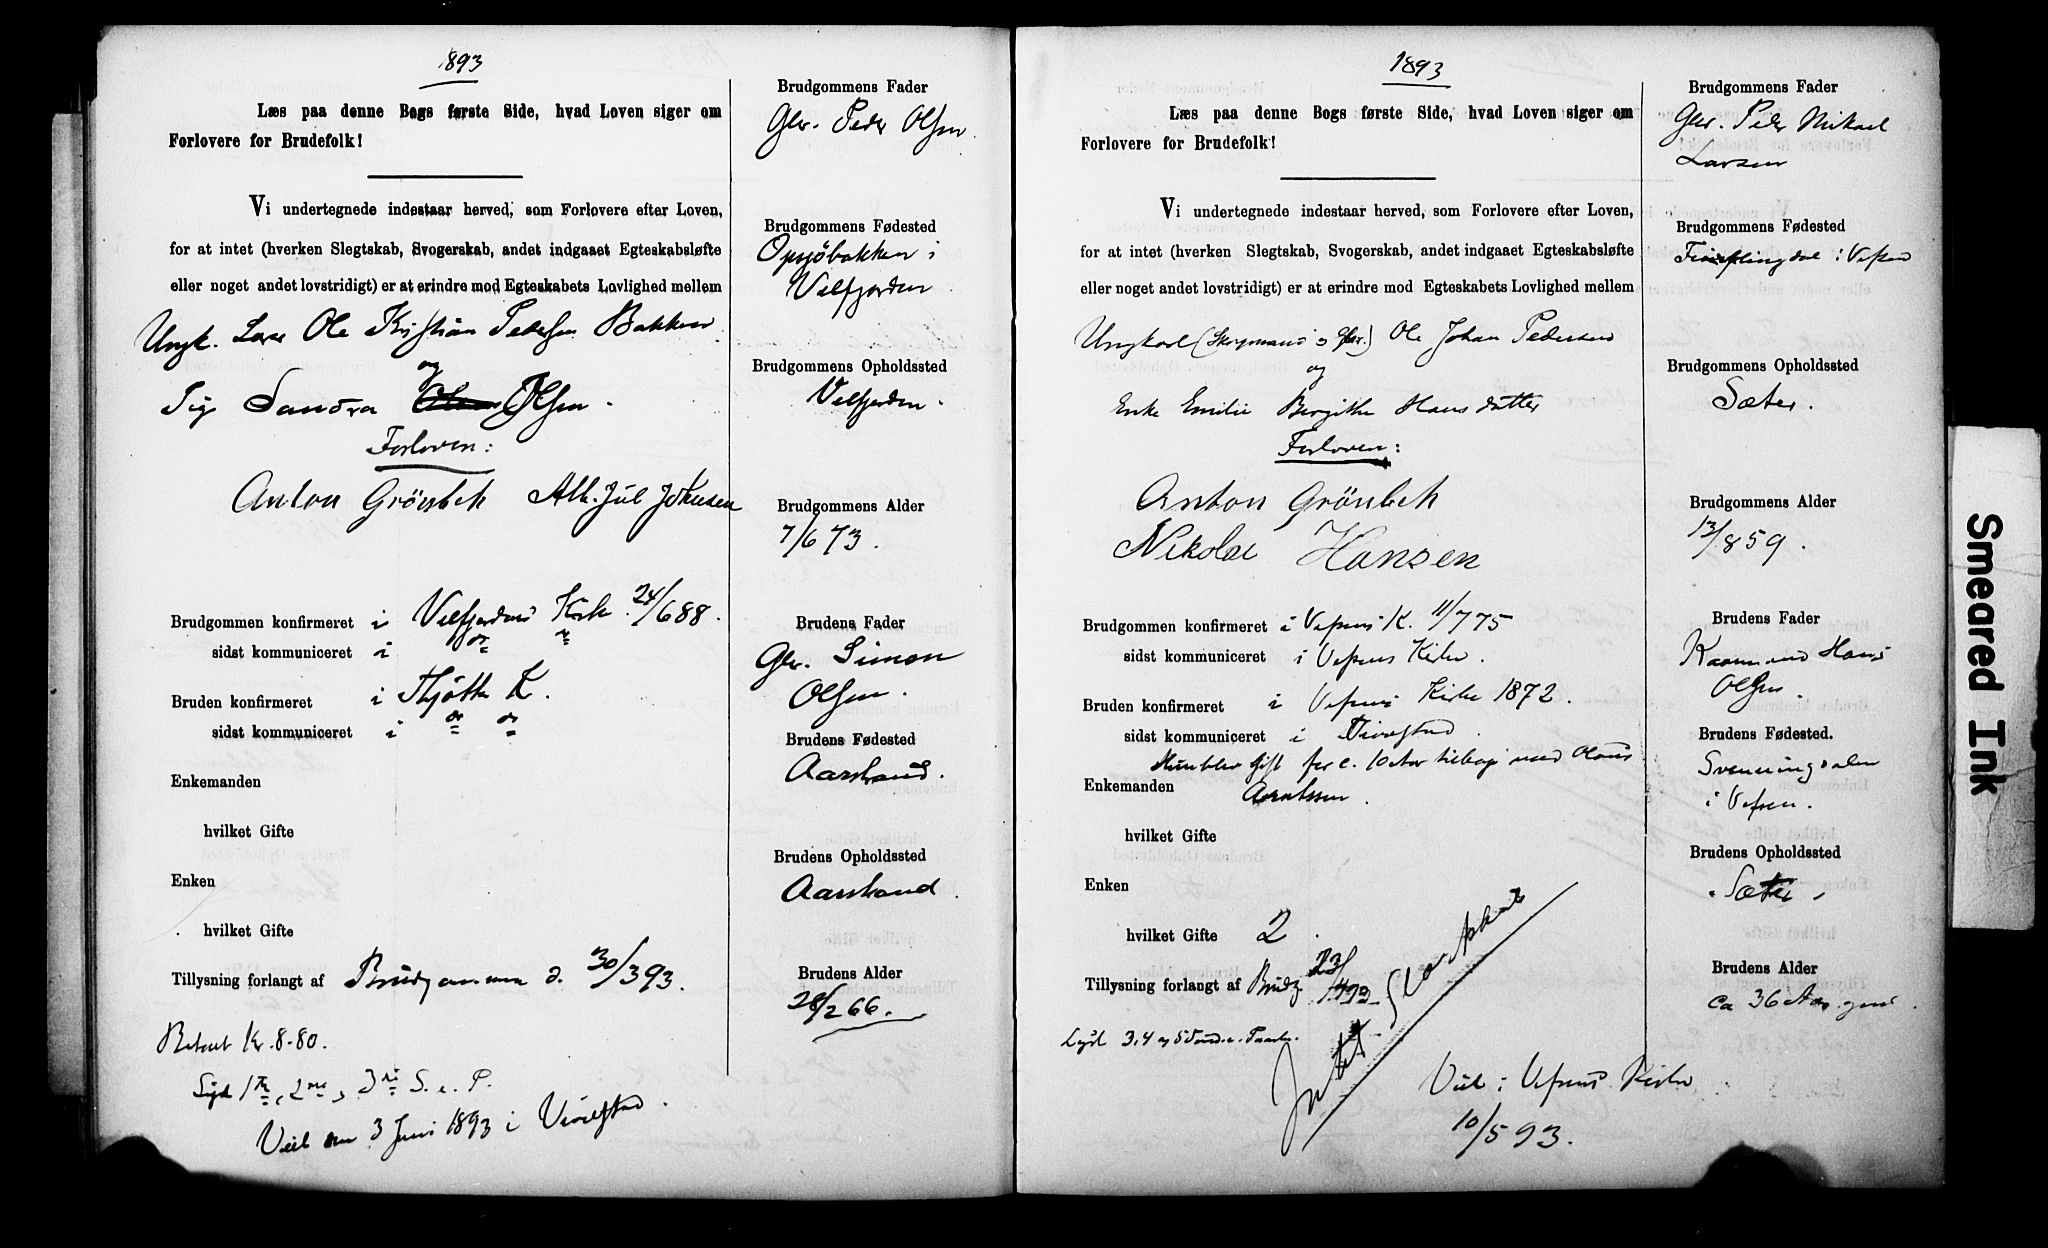 1893
Læs paa denne Bogs første Side, hvad Loven siger om
Forlovere for Brudefolk!
Vi undertegnede indestaar herved, som Forlovere efter Loven,
for at intet (hverken Slegtskab, Svogerskab, andet indgaaet Egteskabsløfte
eller noget andet lovstridigt) er at erindre mod Egteskabets Lovlighed mellem
Ungk. Ole Kristian Pedersen Bakken
og
Pige Sandra Olsen.
Forlovere:
Anton Grönbek Alb. Jul Johnsen
Brudgommen konfirmeret i Velfjordens Kirke 24/6 88.
sidst kommuniceret i do do
Bruden konfirmeret i Thjötta K.
sidst kommuniceret i do do
Enkemanden
hvilket Gifte
Enken
hvilket Gifte
Tillysning forlangt af Brudgommen d. 30/3 93.
Betalt Kr. 8-80.
Lyst 1ste, 2den, 3die S. e. P.
Viet den 3 Juni 1893 i Vivelstad.
Brudgommens Fader
Gbr. Peder Olsen.
Brudgommens Fødested
Opsjöbakken i
Velfjorden
Brudgommens Opholdssted
Velfjorden.
Brudgommens Alder
7/6 73.
Brudens Fader
Gbr. Simon
Olsen.
Brudens Fødested
Aarstrand.
Brudens Opholdssted
Aarstrand.
Brudens Alder
28/2 66.
1893
Læs paa denne Bogs første Side, hvad Loven siger om
Forlovere for Brudefolk!
Vi undertegnede indestaar herved, som Forlovere efter Loven,
for at intet (hverken Slegtskab, Svogerskab, andet indgaaet Egteskabsløfte
eller noget andet lovstridigt) er at erindre mod Egteskabets Lovlighed mellem
Ungkarl Ole Johan Pedersen
og
Enke Emilie Birgitte Hansdatter
Forlovere:
Anton Grönbek
Nikolai Hansen
Brudgommen konfirmeret i Vefsens K. 11/7 75
sidst kommuniceret i Vefsens Kirke.
Bruden konfirmeret i Vefsens Kirke 1872.
sidst kommuniceret i Vivelstad.
Hun blev gift for c. 10 Aar tilbage med Olaus
Enkemanden Arntssen.
hvilket Gifte
Enken
hvilket Gifte 2.
Tillysning forlangt af Brudg. 23/4 93
Lyst 3, 4 og 5 Sönd. e. Paaske.
Viet i Vefsens Kirke
10/5 93.
Brudgommens Fader
Gbr. Peder Mikael
Larsen
Brudgommens Fødested
i Vefsen
Brudgommens Opholdssted
Sæter.
Brudgommens Alder
13/8 59.
Brudens Fader
Hans
Olsen.
Brudens Fødested.
Svenningdalen
i Vefsen.
Brudens Opholdssted
Sæter.
Brudens Alder
ca 36 Aar gml.
Smeared Ink